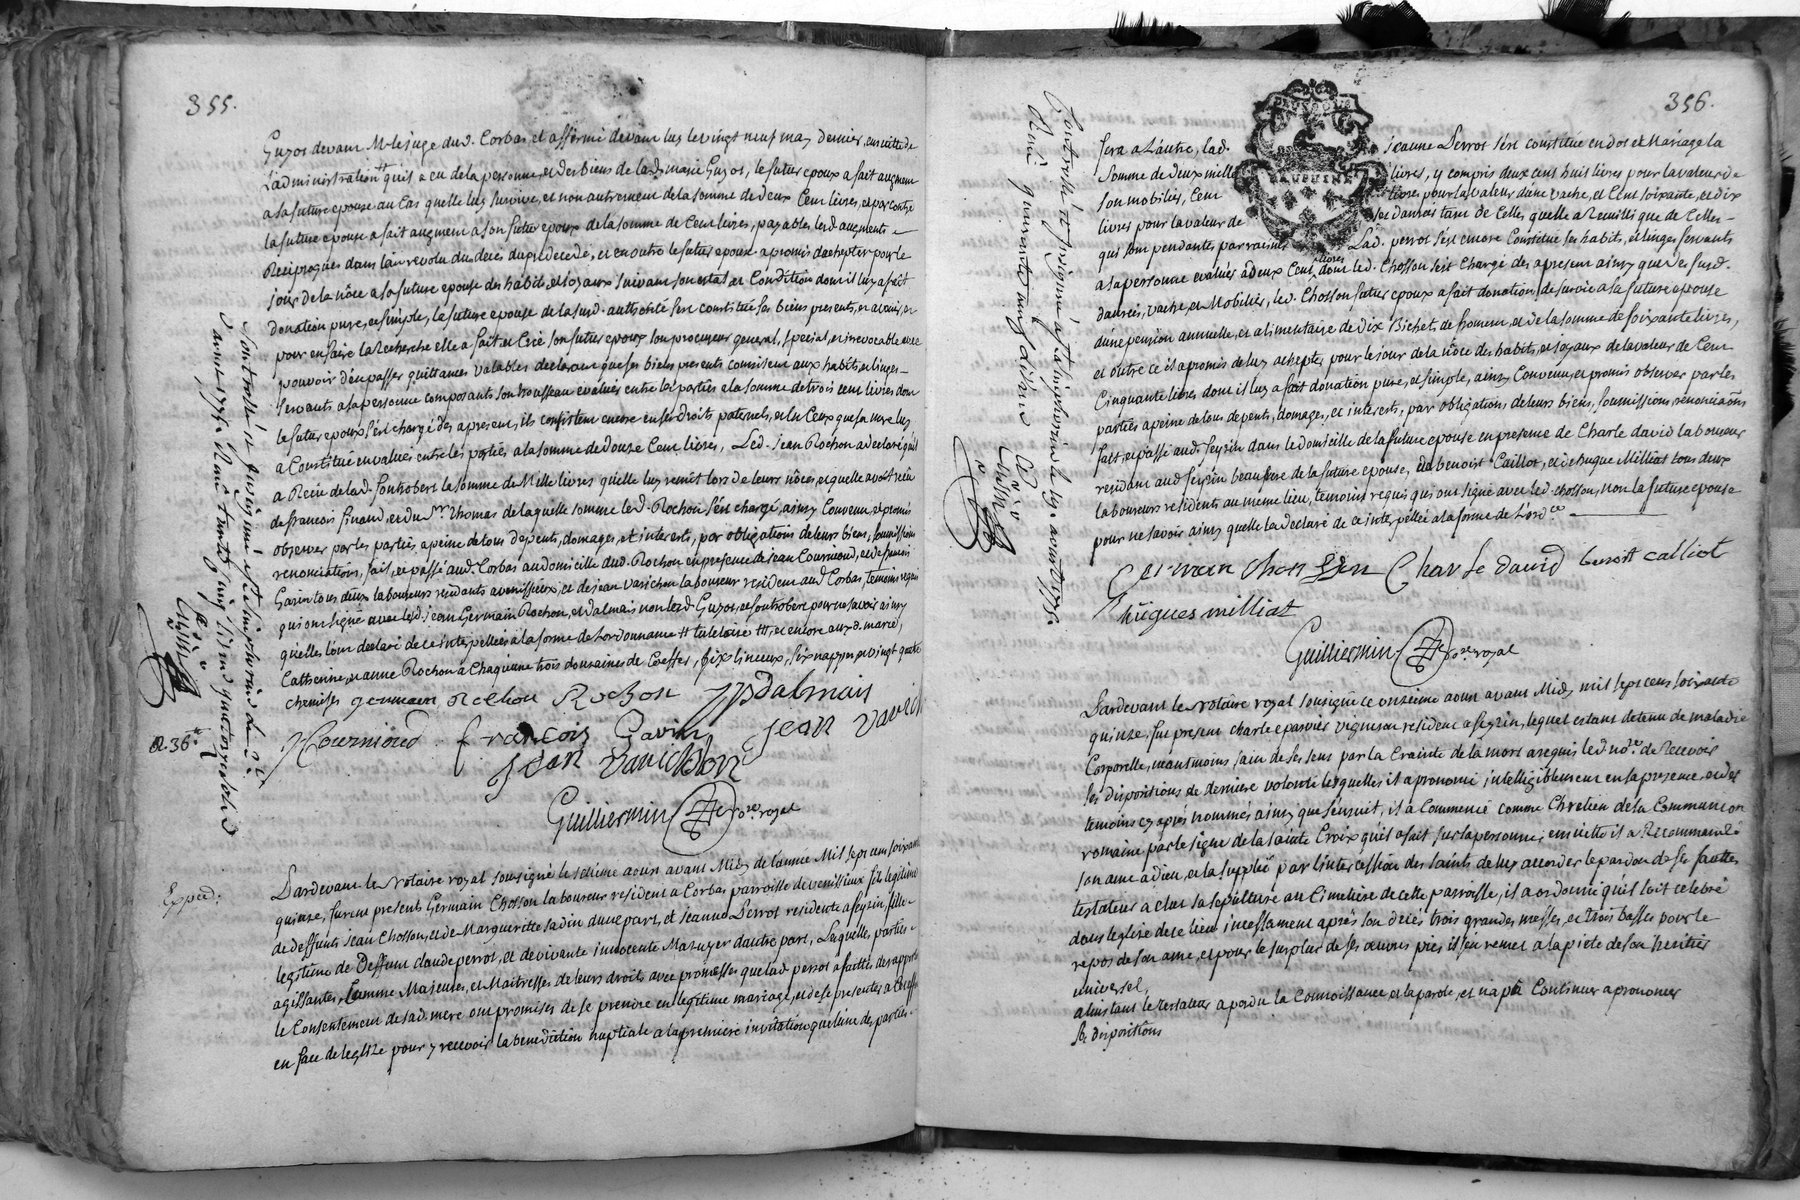 355.
Guyot devant Mr le juge dud. Corbas, et affermé devant luy le vingt neuf may dernier, ensuitte de
L'administration # qu'il a eu de la personne, et des biens de lad. marie Guyot, le futur epoux a fait augment
a sa future epouse au Cas quelle luy survive, et non autrement de la somme de deux Cent livres, et par contre
la future epouse a fait augment a son futur epoux de la somme de Cent livres, payables lesd. augments
Reciproques dans l'an revolu du deces du predecedé, et en outre le futur epoux a promis d'achepter pour le
jour de la nôce a sa future epouse des habits, et joyaux suivant son estat et Condition dont il luy a fait
donation pure, et simple, la future epouse de la susd. authorité s'est constitué ses biens presents, et avenir, et
pour en faire la Recherche elle a fait et Créé son futur epoux son procureur general, special, et irrevocable avec
pouvoir d'en passer quittances valables declarant que ses biens presents consistent aux habits, et linges
servants a sa personne composants son trousseau evalués entre les parties a la somme de trois cent livres dont
le futur epoux s'est chargé dès apresent, ils consistent encore en ses droits paternels, et en Ceux que sa mere luy
a Constitué evalués entre les parties a la somme de douze Cent livres, Led. Jean Rochon a declaré qu'il
a Reçu de lad. Jontrobert la somme de Mille livres qu'elle luy remit lors de leurs nôces, et quelle avoit reçu
de françois finand, et du Sr. thomas de laquelle somme led. Rochon s'est chargé, ainsy Convenu, et promis
observer par les parties, a peine de tous depents, domages, et interests, par obligations de leurs biens, soumissions
renonciations, fait, et passé aud. Corbas au domicille dud. Rochon en presence de jean Cournioud, et de françois
Gavin tous deux laboureurs residants a venissieux, et de jean varichon laboureur resident aud. Corbas, temoins requis
qui ont signé avec lesd. jean Germain Rochon, et dalmais non lesd. Guyot, et Jontrobert pour ne savoir ainsy
qu'elles l'ont declaré de ce interpellées a la forme de Lordonnance # tutelaire ##, et encore auxd. marie,
Catherine, et anne Rochon a Chaqu'une trois douzaines de Coeffes, six linceux, six nappes et vingt quatre
chemises germain Rochon Rochon JPdalmais
JCournioud. françois Gavin jean varichon
Jean varichon
Guilliermin No.re royal
Controllé et insinué a St simphorien le 3e
d'aout 1775 Reçu trente cinq livres quatorze sols
R. 36.#
Exped:
Pardevant le Notaire royal soussigné le sétième aout avant Midy de l'année Mil sept cent soixante
quinze, furent presents Germain Chosson laboureur resident a Corbas parroisse de venissieux fils legitime
de deffunts Jean Chosson, et de Margueritte Jadin d'une part, et jeanne Perrot residente a seyzin, fille
legitime de Deffunt claude perrot, et de vivante innocente Mazuyer d'autre part, Lesquelles parties
agissantes, Comme Majeures, et Maitresses de leurs droits avec promesses que lad. perrot a faittes de rapporter
le Consentement de sad. mere ont promises de se prendre en legitime mariage, et de se presenter a Cet effet
en face de leglize pour y recevoir la benediction nuptiale a la premiere invitation que l'une des parties
356.
DAUPHINE
fera a L'autre, lad. jeanne Perrot s'est constitué en dot et Mariage la
somme de deux mille livres, y compris deux cent huit livres pour la valeur de
son mobilier, Cent livres pour la valeur d'une vache, et Cent soixante, et dix
livres pour la valeur de ses danrées tant de Celles, quelle a Recuillis que de Celles
qui sont pendantes par racines Lad. perrot s'est encore Constitué ses habits, et linges servants
a sa personne evalués a deux Cent livres dont led. Chosson s'est Chargé dès apresent ainsy que des susd.
danrées, vache, et Mobilier, led. Chosson futur epoux a fait donation de survie a sa future epouse
d'une pension annuelle, et alimentaire de dix Bichets de froment, et de la somme de soixante livres,
et outre ce il a promis de luy achepter pour le jour de la nôce des habits, et joyaux de la valeur de Cent
Cinquante livres dont il luy a fait donation pure, et simple, ainsy Convenu, et promis observer par les
parties a peine de tous depents, domages, et interests, par obligations de leurs biens, soumissions, renonciaôns
fait, et passé aud. seyzin dans le domicille de la future epouse en presence de Charle david laboureur
resident aud. seyzin beaufrere de la future epouse, de benoist Caillot, et d'hugue Milliat tous deux
laboureurs residents au même lieu, temoins requis qui ont signé avec led. chosson, non la future epouse
pour ne savoir ainsy quelle la declaré de ce interpellée a la forme de l'ord.ce
Germain Chosson Charle david benoit calliot
hugues milliat
Guilliermin No.re royal
Controllé et insinué a St simphorien le 19. aout 1775.
Reçu quarante cinq livres dix s
Pardevant le Notaire royal soussigné ce onzième aout avant Midy mil sept cent soixante
quinze, fut present charle epanvier vigneron resident a seyzin, lequel estant detenu de maladie
Corporelle, neantmoins sain de ses sens par la Crainte de la mort a requis led. no.re de Recevoir
ses dispositions de derniere volonté lesquelles il a prononcé intelligiblement en sa presence, et des
temoins cy après nommés ainsy que s'ensuit, il a Commencé comme Chretien de la Communion
romaine par le signe de la sainte Croix qu'il a fait sur la personne, ensuitte il a Recommandé
son ame a dieu, et la supplié par l'intercession des saints de luy accorder le pardon de ses fauttes
testateur a elu sa sepulture au Cimetière de cette parroisse, il a ordonné qu'il soit celebré
dans leglize de ce lieu incessament après son decès trois grandes messes, et trois basses pour le
repos de son ame, et pour le surplus de ses œuvres pies il s'en remet a la pieté de son heritier
universel,
a l'instant le testateur a perdu la Connoissance et la parole, et n'a pû Continuer a prononcer
ses dispositions